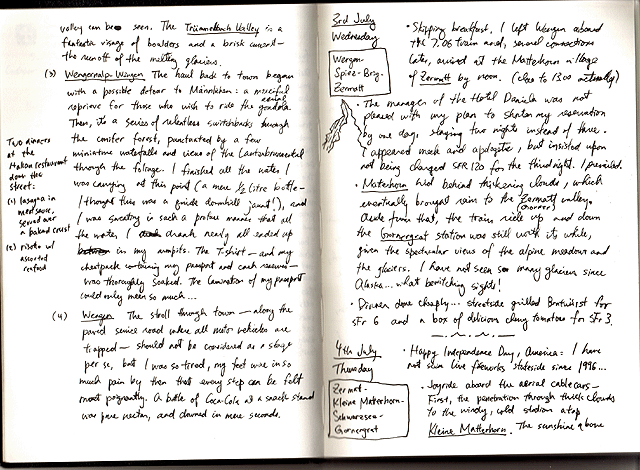 valley can be seen. The Trümmelbach Valley is a
fantasia visage of boulders and a brisk current—
the runoff of the melting glaciers.
(3) Wengernalp-Wengen The haul back to town began
with a possible detour to Männlichen: a merciful
reprieve for those who wish to ride the aerial gondola.
Then, it's a series of relentless switchbacks through
the conifer forest, punctuated by a few
miniature waterfalls and views of the Lauterbrunnental
through the foliage. I finished all the water I
was carrying at this point (a mere ½ litre bottle—
I thought this was a guide downhill jaunt!), and
I was sweating in such a profuse manner that all
the water I drank nearly all ended up
in my armpits. The T-shirt—and my
chestpack containing my passport and cash reserves—
was thoroughly soaked. The lamination of my passport
could only mean so much...
Two dinners
at the
Italian restaurant
down the
street:
(1) lasagna in
meat sauce,
served over
a baked crust
(2) risotto w/
assorted
seafood
(4) Wengen The stroll through town—along the
paved service road where all motor vehicles are
trapped—should not be considered as a stage
per se, but I was so tired, my feet were in so
much pain by then that every step can be felt
most poignantly. A bottle of Coca-Cola at a snack stand
was pure nectar, and downed in mere seconds.
3rd July
Wednesday
Wengen-
Spiez-Brig-
Zermatt
• Skipping breakfast, I left Wengen aboard
the 7.06 train and, several connections
later, arrived at the Matterhorn village
of Zermatt by noon. (close to 1300 actually)
• The manager of the Hotel Daniela was not
pleased with my plan to shorten my reservation
by one day, staying two nights instead of three.
I appeared meek and apologetic, but insisted upon
not being charged SFR 120 for the third night. I prevailed.
• Matterhorn hid behind thickening clouds, which
eventually brought rain to the Zermatt valley.
Aside from that, the train ride up and down
the Gornergrat station was still worth its while,
given the spectacular views of the alpine meadows and
the glaciers. I have not seen so many glaciers since
Alaska... what bewitching sights!
• Dinner done cheaply... streetside grilled Bratwurst for
SFr 6 and a box of delicious cherry tomatoes for SFr 3.
4th July
Thursday
Zermatt-
Kleine Matterhorn-
Schwarzsee-
Gornergrat
• Happy Independence Day, America: I have
not seen live fireworks stateside since 1996...
• Joyride aboard the aerial cable cars—
First, the penetration through thick clouds
to the windy, cold station atop
Kleine Matterhorn. The sunshine above